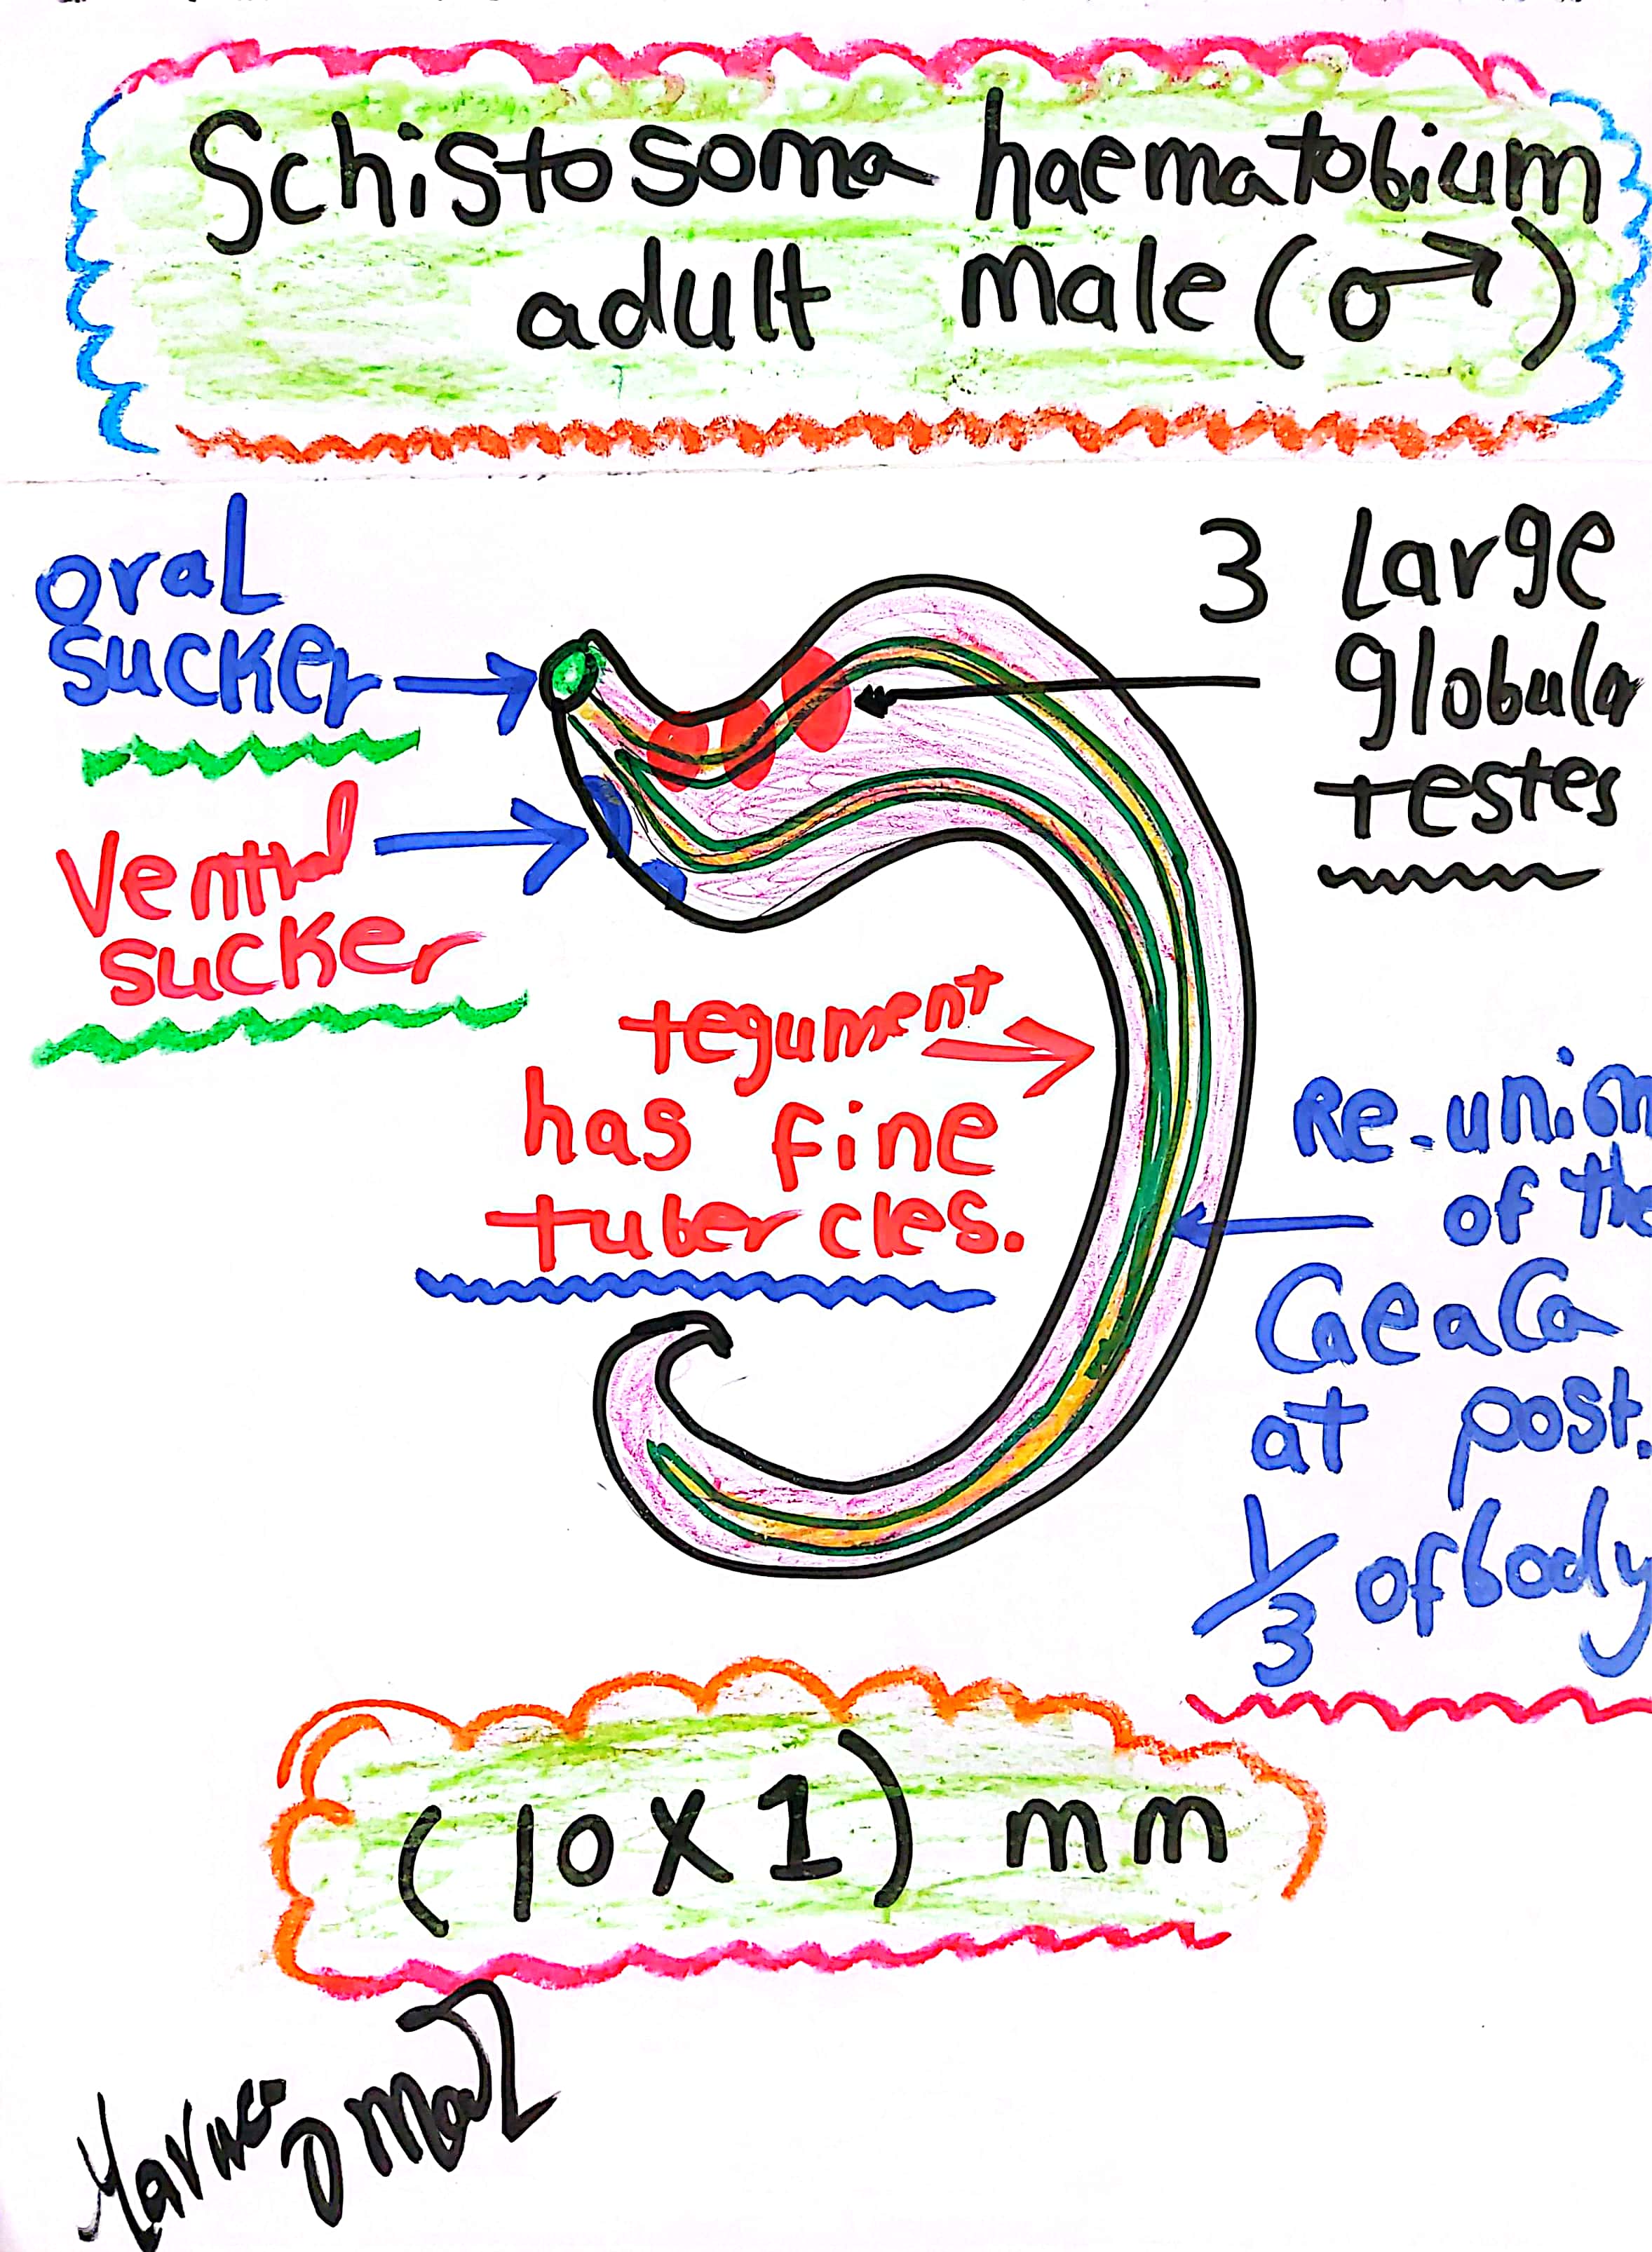 Schistosoma haematobium
adult male (♂)
oral
sucker
Ventral
sucker
3 large
globular
testes
tegument
has fine
tubercles.
Re-union
of the
Caeaca
at post.
1/3 of body
(10X1) mm